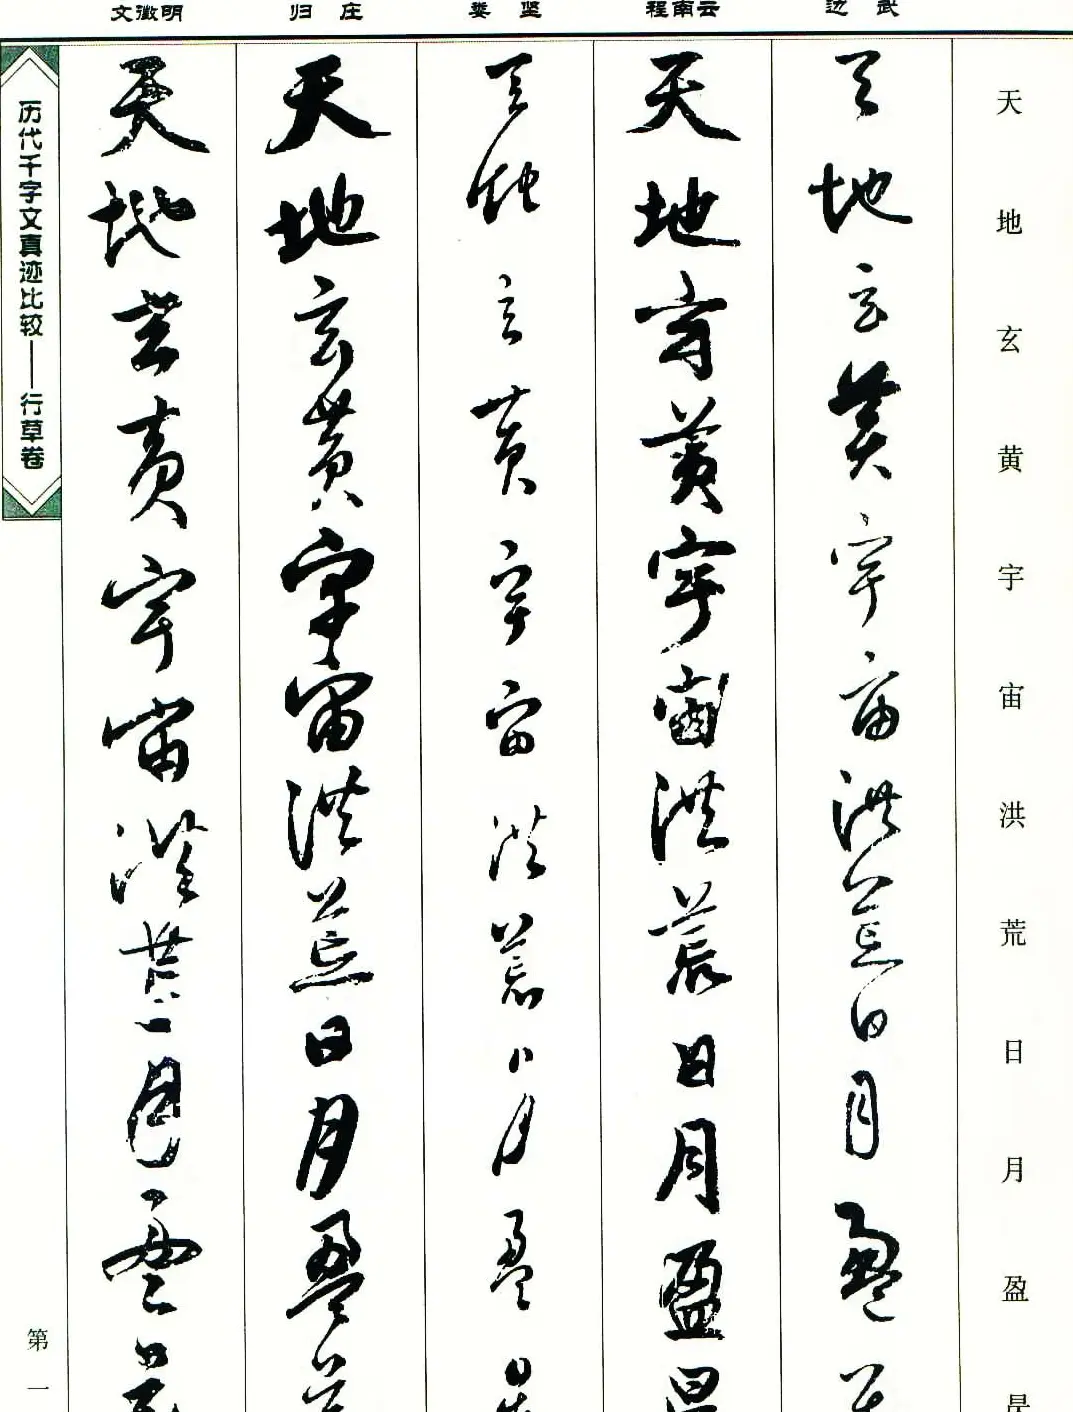 文徵明 归庄 娄坚 程南云 边武
天地玄黄宇宙洪荒日月盈
天地玄黄宇宙洪荒日月盈
天地玄黄宇宙洪荒日月盈
天地玄黄宇宙洪荒日月盈
天地玄黄宇宙洪荒日月盈
天地玄黄宇宙洪荒日月盈
历代千字文真迹比较——行草卷
第一